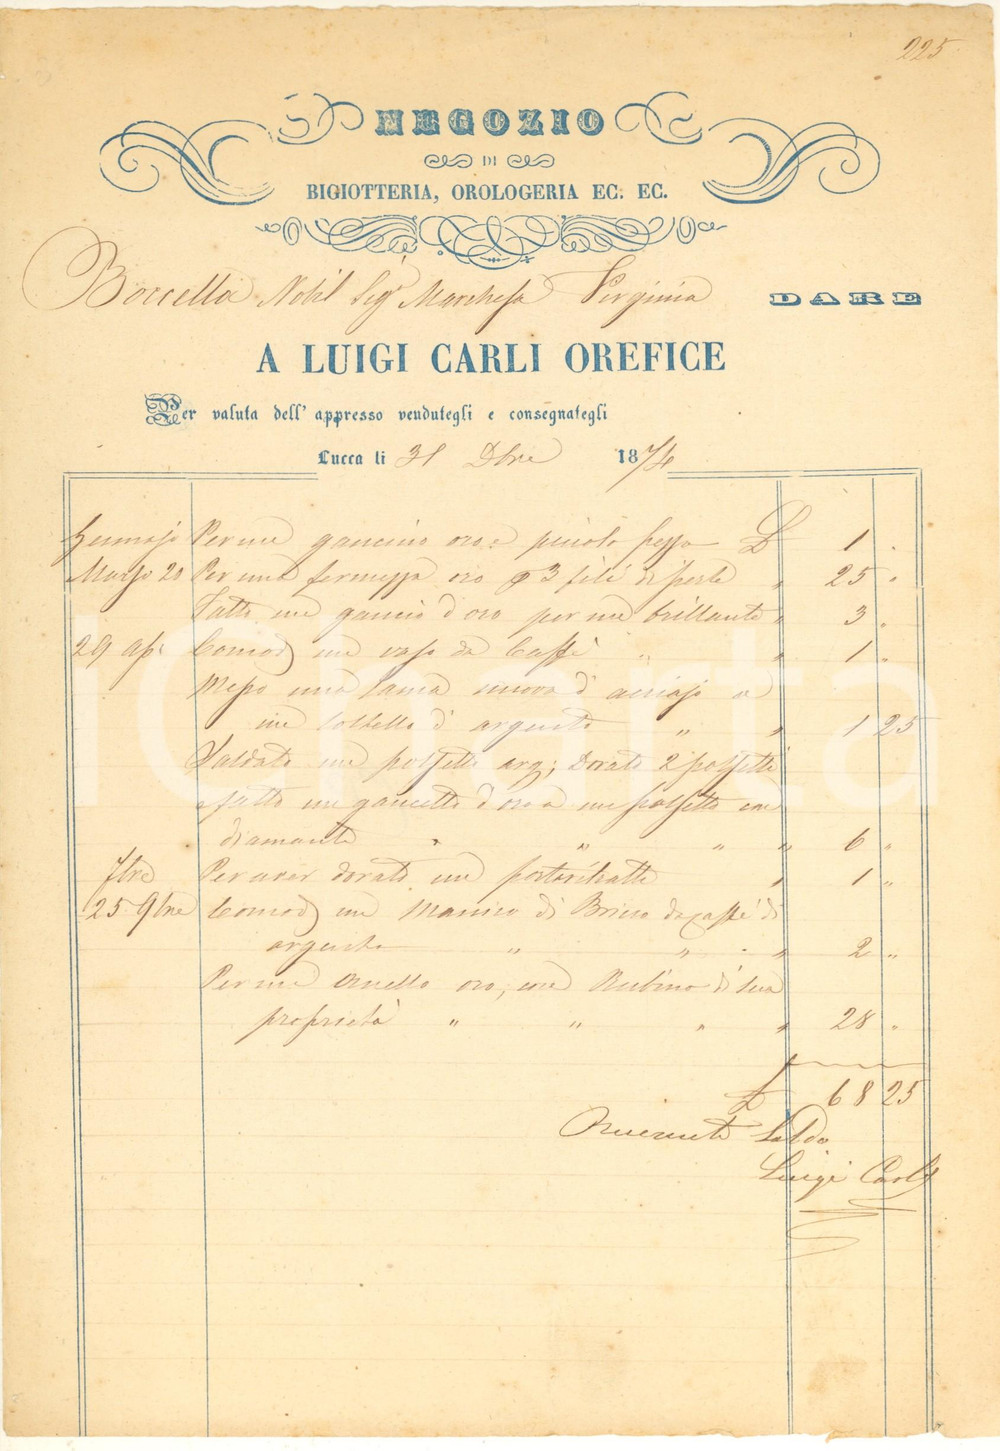 225
NEGOZIO
DI
BIGIOTTERIA, OROLOGERIA EC. EC.
Boccella Nobil Sigra Marchesa Virginia DARE
A LUIGI CARLI OREFICE
Per valuta dell' appresso vendutegli e consegnategli
Lucca li 31 Dbre 1874
Gennajo Per un gancino oro e piccolo £ 1 "
Marzo 20 Per una fermezza oro 3 fili di perle " 25 "
Fatto un gancio d'oro per un brillante " 3 "
29 ap: Comod un vaso da Caffè " " 1 "
Messo una lama nuova d'acciajo a
un coltello d'argento " " 1 25
Saldato un polsetto arg; Dorato 2 polsetti
e fatto un gancetto d'oro a un polsetto con
diamante " " " " 6 "
7bre Per aver dorato un portaritratti " 1 "
25 9bre Comod un Manico di Bricco da caffè di
argento " " " 2 "
Per un Anello oro, con Rubino di sua
proprietà " " " " 28 "
£ 68 25
Ricevuto Saldo
Luigi Carli